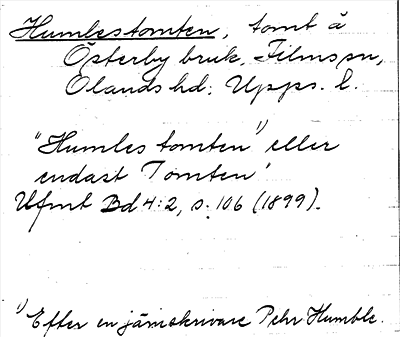 Humlestomten, tomt å
Österby bruk, Films sn,
Olands hd, Upps. l.
"Humlestomten¹⁾ eller
endast Tomten"
Ufmt Bd 4:2, s. 106 (1899).
¹⁾ Efter en järnskrivare Pehr Humble.